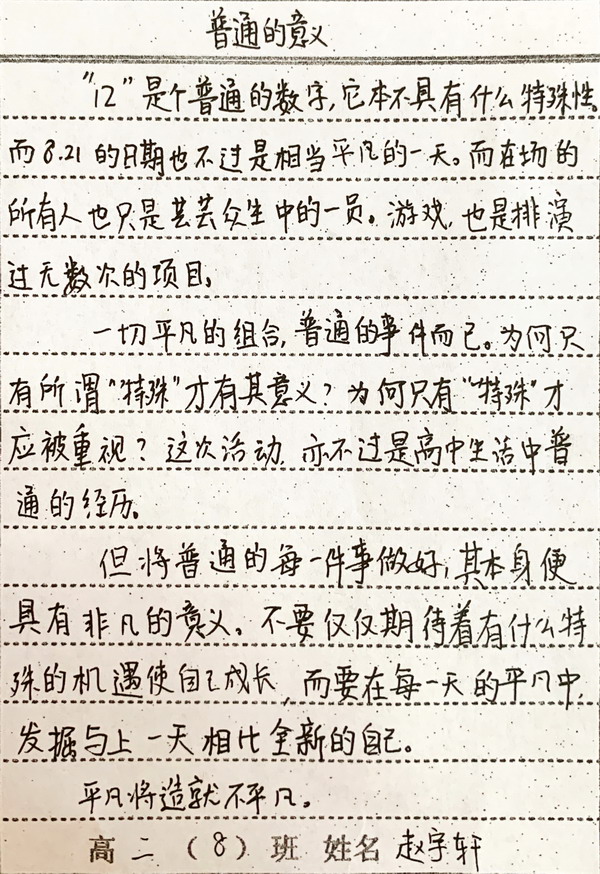 普通的意义
“12”是个普通的数字,它本不具有什么特殊性。
而8.21的日期也不过是相当平凡的一天。而在场的
所有人也只是芸芸众生中的一员。游戏,也是排演
过无数次的项目。
一切平凡的组合,普通的事件而已。为何只
有所谓“特殊”才有其意义?为何只有“特殊”才
应被重视?这次活动,亦不过是高中生活中普
通的经历。
但将普通的每一件事做好,其本身便
具有非凡的意义。不要仅仅期待着有什么特
殊的机遇使自己成长,而要在每一天的平凡中,
发掘与上一天相比全新的自己。
平凡将造就不平凡。
高二(8)班 姓名 赵宇轩